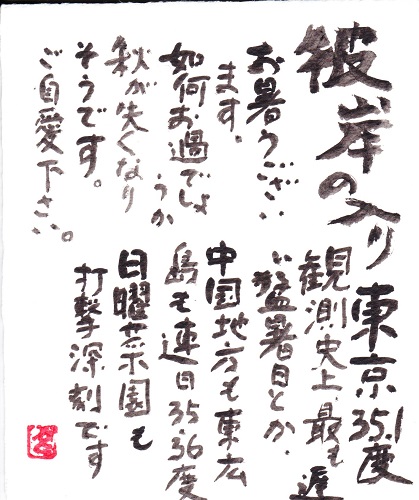 彼岸の入り
お暑うござい
ます。
如何お過でしょ
うか
秋が失くなり
そうです。
ご自愛下さい。
東京35.1度
観測史上最も遅
い猛暑日とか.
中国地方も東広
島も連日35.36度
日曜や菜園も
打撃深刻です